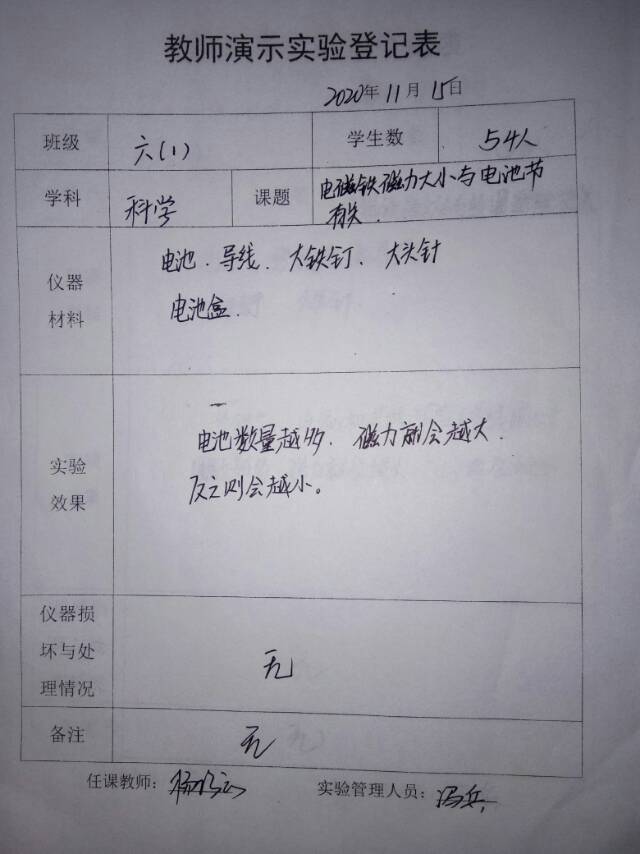 教师演示实验登记表
2020年 11月 15日
班级 六(1) 学生数 54人
学科 科学 课题 电磁铁磁力大小与电池节
有关.
仪器
材料
电池. 导线. 大铁钉、大头针
电池盒.
实验
效果
电池数量越多, 磁力就会越大.
反之则会越小。
仪器损
坏与处
理情况
无
备注 无
任课教师: 杨 实验管理人员: 冯兵